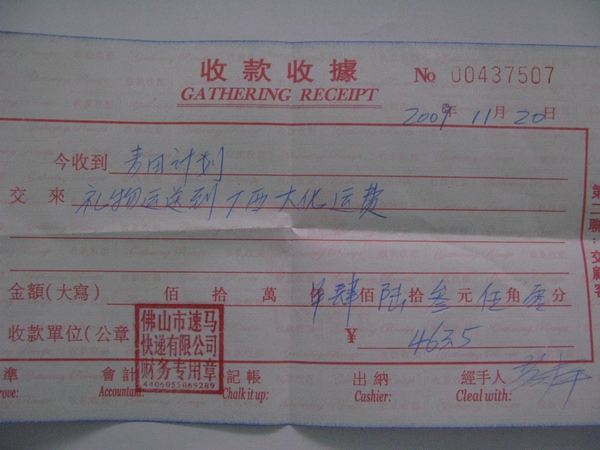 收款收據 No 00437507
GATHERING RECEIPT
2009年 11月 20日
今收到 麦田计划
交來 礼物运送到广西大化运费
金額(大寫) 佰 拾 萬 仟 肆佰 陆拾 叁元 伍角 零分
收款單位(公章 ¥ 463.5
佛山市速马
快递有限公司
财务专用章
4406051069289
準 會計 記帳 出納 經手人
rove: Accountant: Chalk it up: Cashier: Cleal with:
第二聯:交顧客